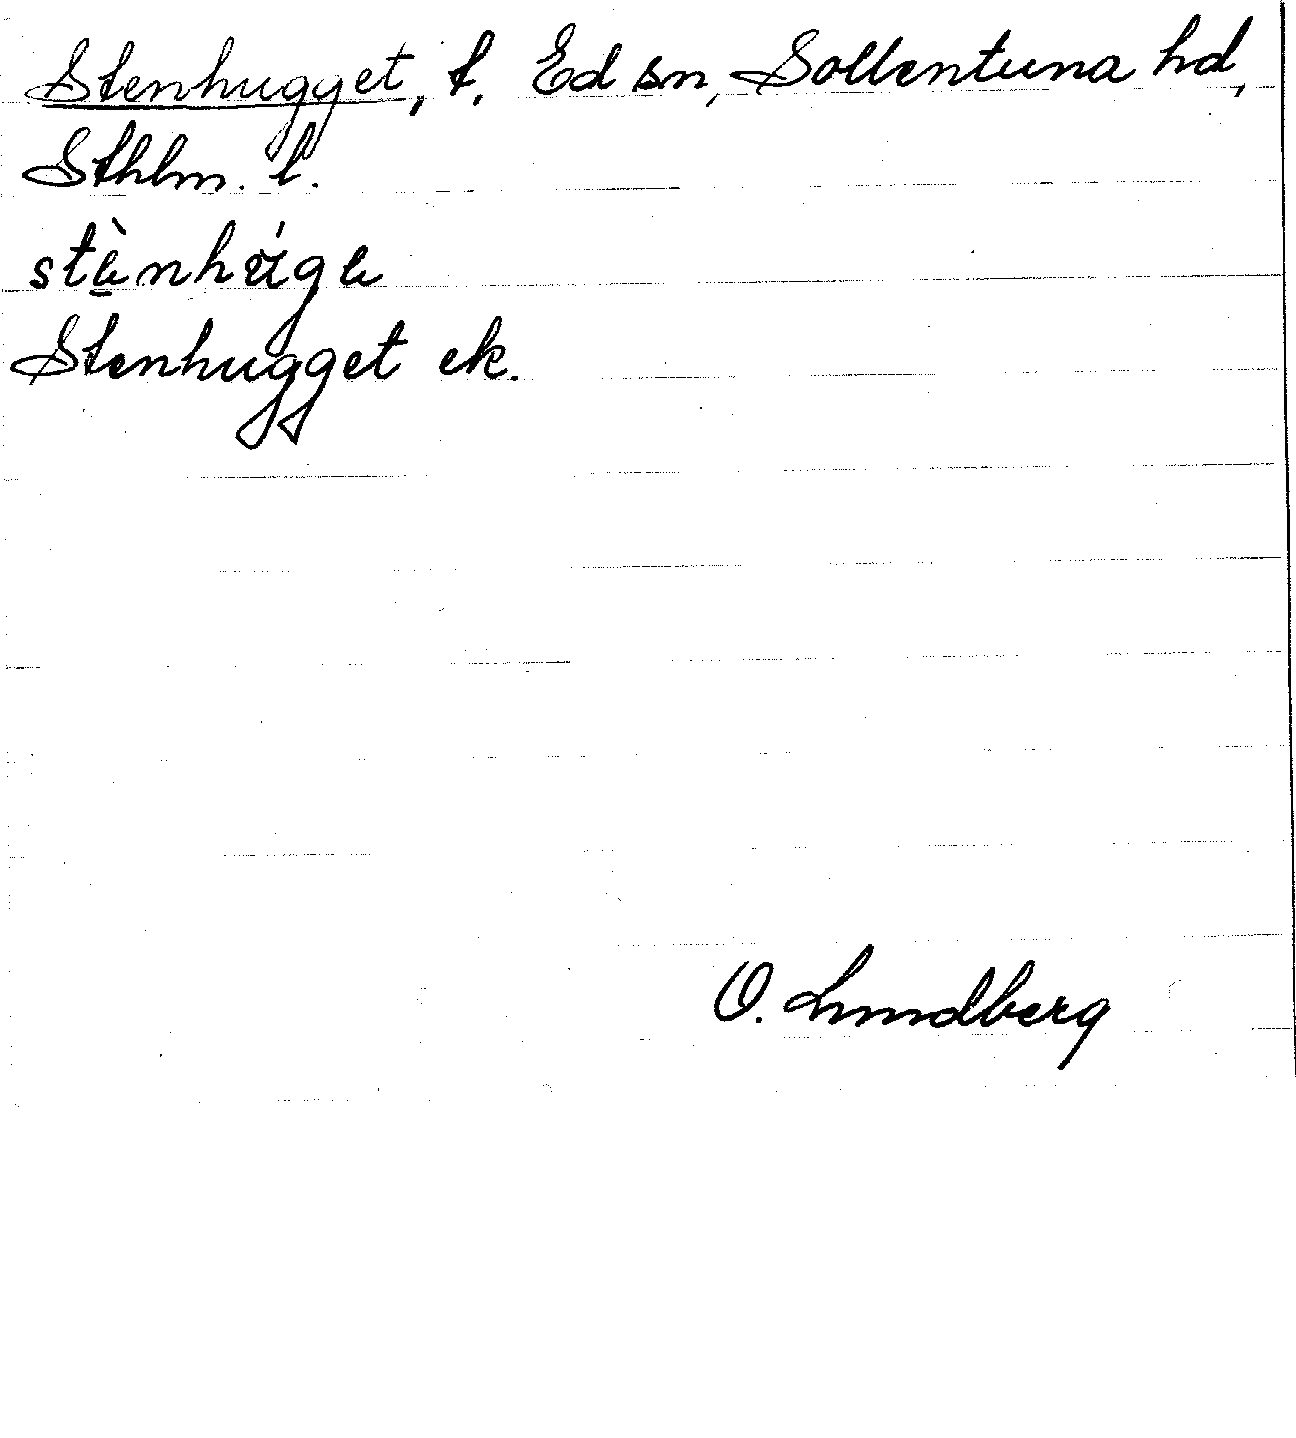 Stenhugget, t. Ed sn, Sollentuna hd,
Sthlm. l.
Stenhugget ek.
O. Lundberg